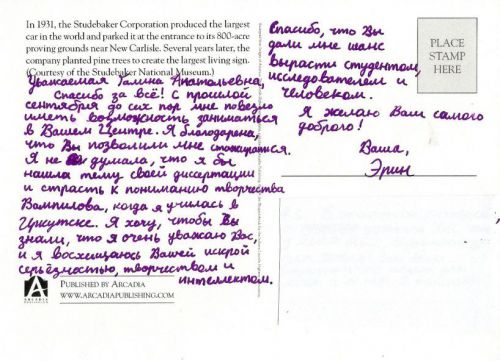 In 1931, the Studebaker Corporation produced the largest
car in the world and parked it at the entrance to its 800-acre
proving grounds near New Carlisle. Several years later, the
company planted pine trees to create the largest living sign.
(Courtesy of the Studebaker National Museum.)
Уважаемая Галина Анатольевна,
Спасибо за всё! С прошлой
сентября до сих пор мне повезло
иметь возможность заниматься
в Вашем Центре. Я благодарена,
что Вы позволили мне стажироваться.
Я не думала, что я бы
нашла тему своей диссертации
и страсть к пониманию творчества
Вампилова, когда я училась в
Иркутске. Я хочу, чтобы Вы
знали, что я очень уважаю Вас,
и я восхищаюсь Вашей искрой
серьёзностью, творчеством и
интеллектом.
PUBLISHED BY ARCADIA
WWW.ARCADIAPUBLISHING.COM
A
ARCADIA
PUBLISHING
Спасибо, что Вы
дали мне шанс
вырасти студентом,
исследователем и
человеком.
Я желаю Вам самого
доброго!
Ваша,
Эрин
PLACE
STAMP
HERE